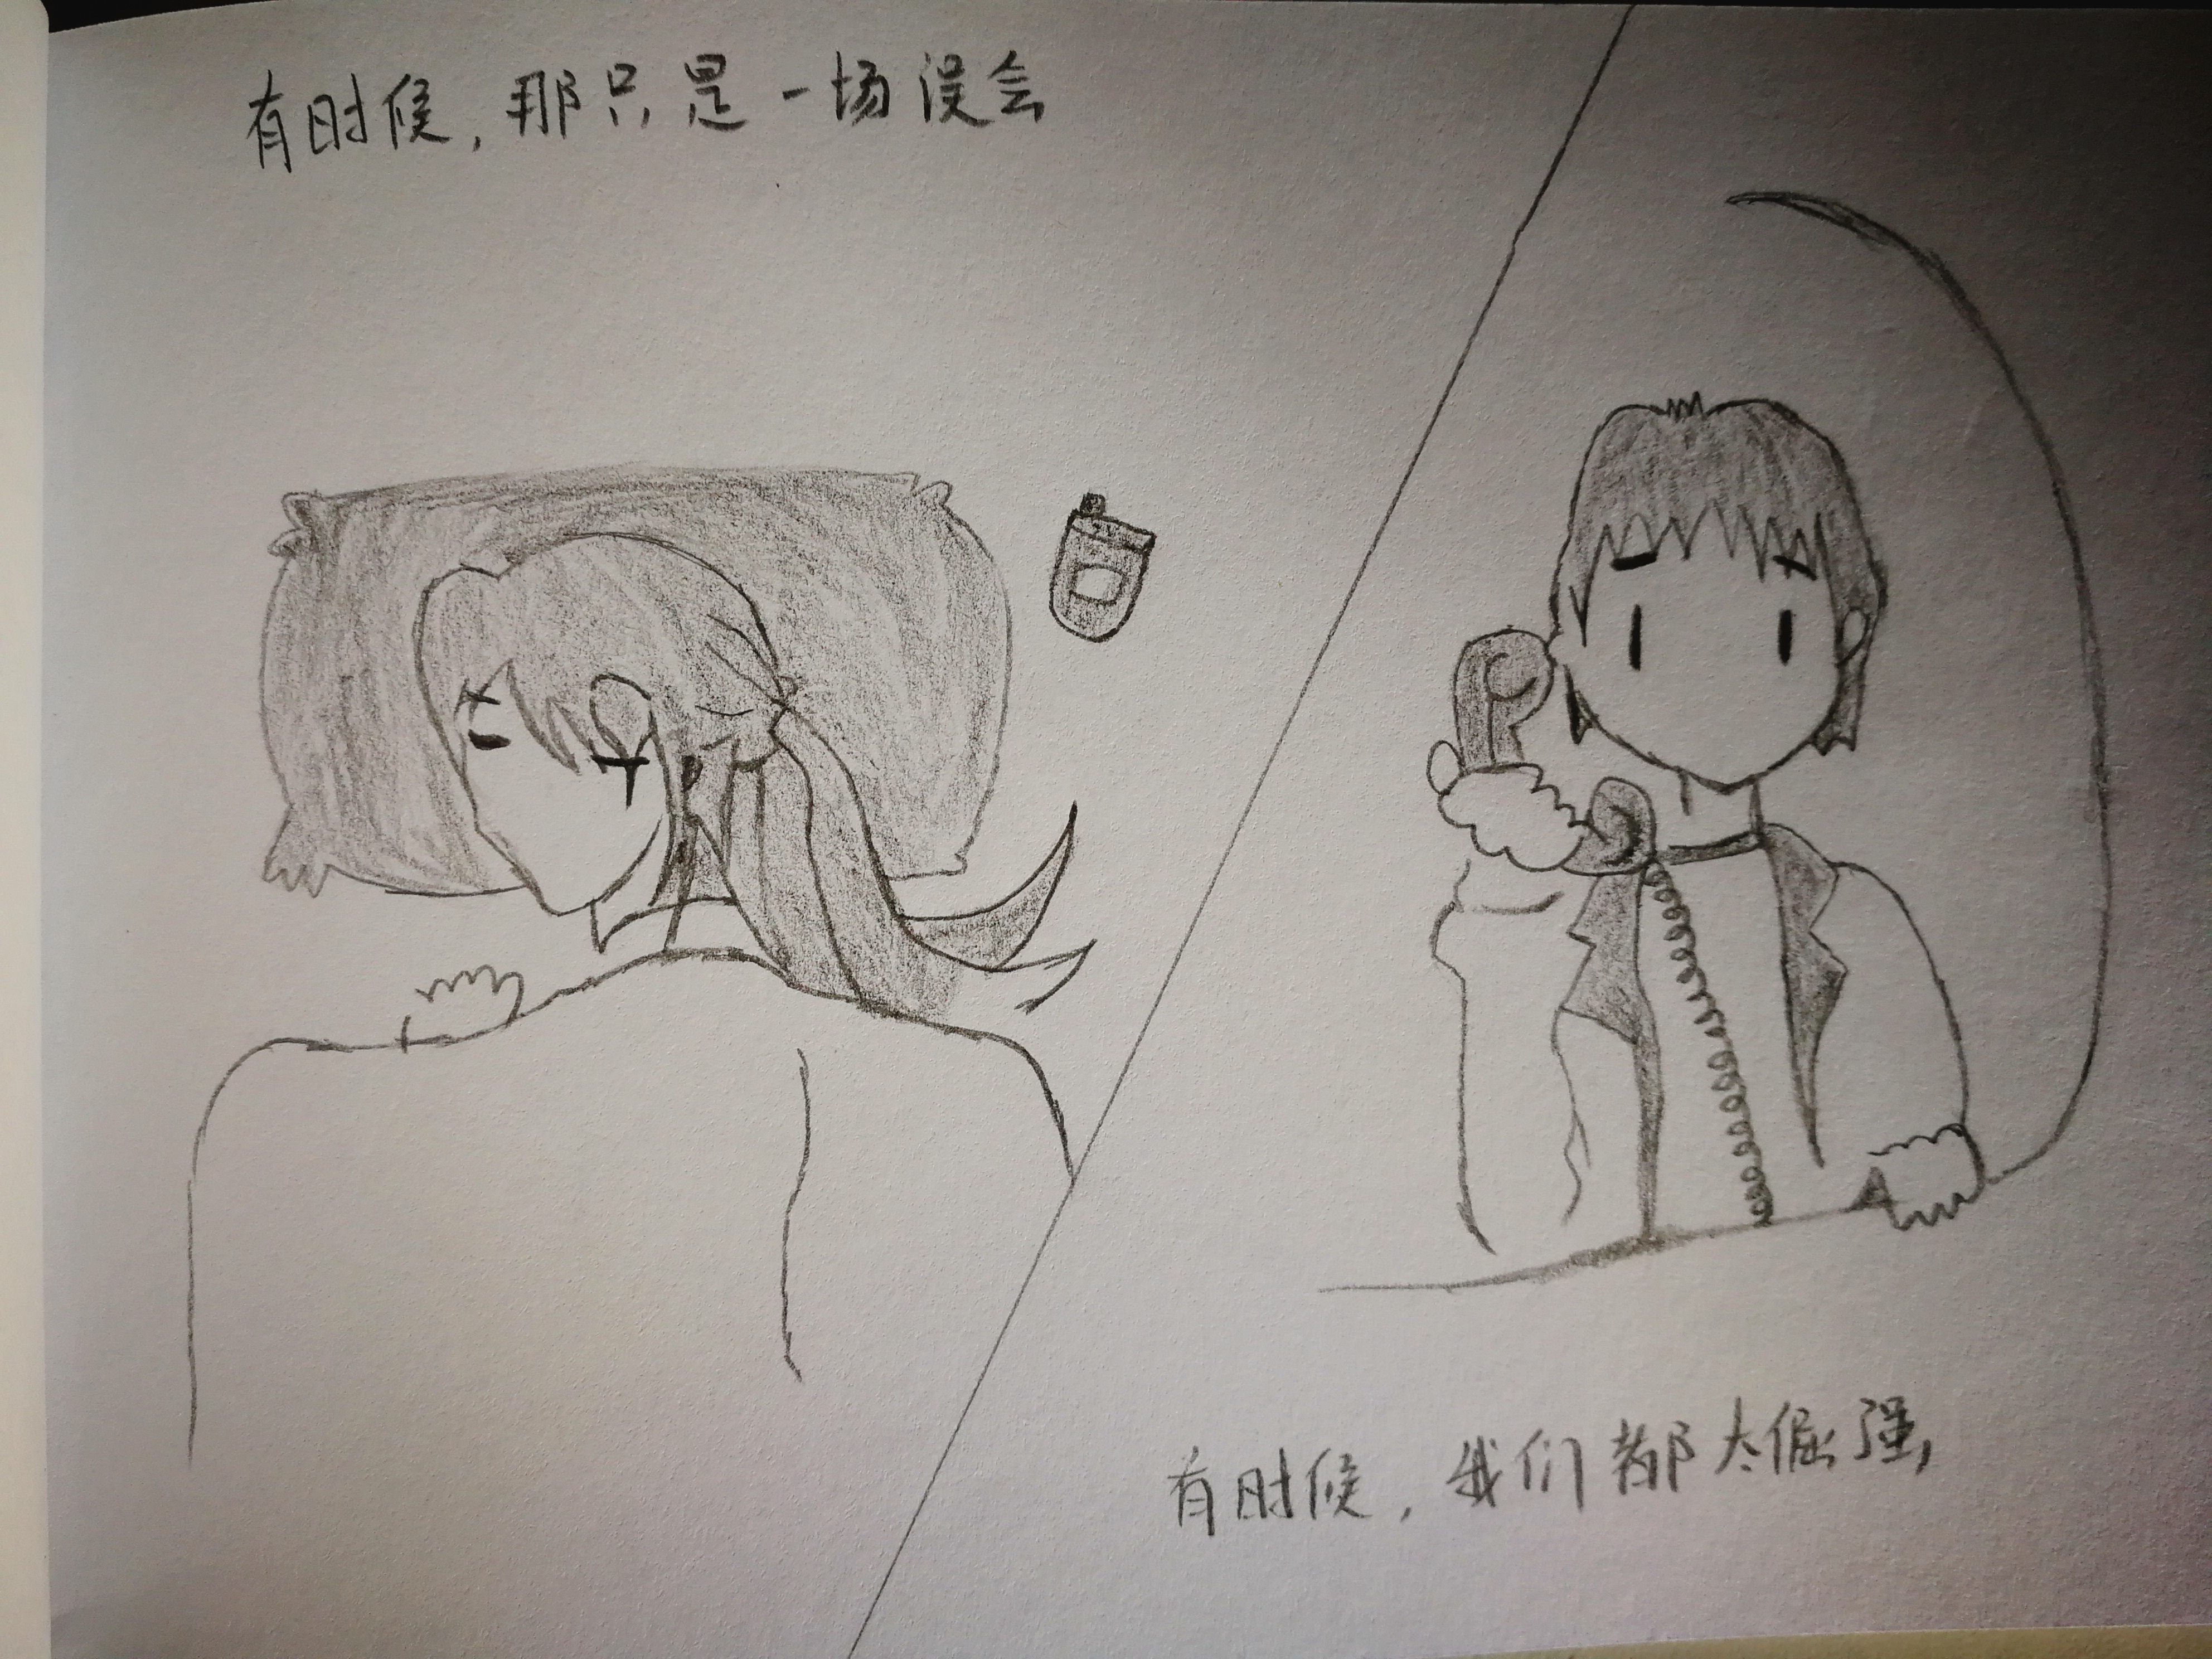 有时候，那只是一场误会
有时候，我们都太倔强，